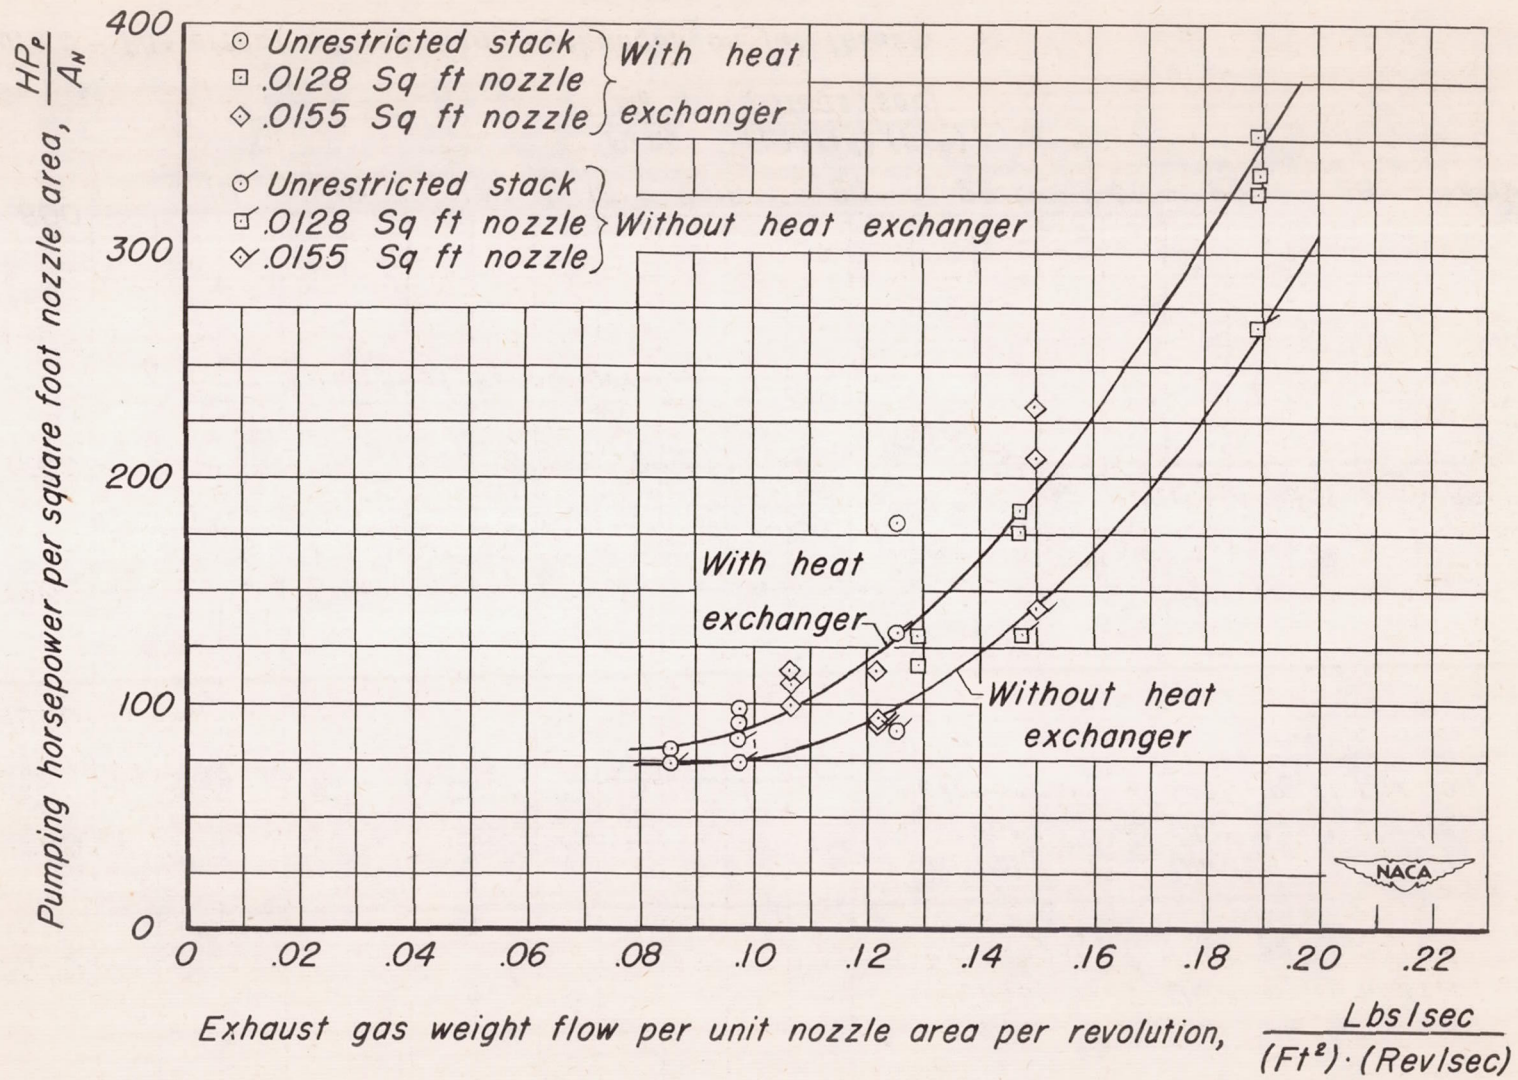 Pumping horsepower per square foot nozzle area, HPₚ / A_N
400
300
200
100
0
⊙ Unrestricted stack
⊡ .0128 Sq ft nozzle
.0155 Sq ft nozzle
With heat
exchanger
Unrestricted stack
.0128 Sq ft nozzle
.0155 Sq ft nozzle
Without heat exchanger
With heat
exchanger
Without heat
exchanger
NACA
0 .02 .04 .06 .08 .10 .12 .14 .16 .18 .20 .22
Exhaust gas weight flow per unit nozzle area per revolution, Lbs/sec
(Ft²)·(Rev/sec)